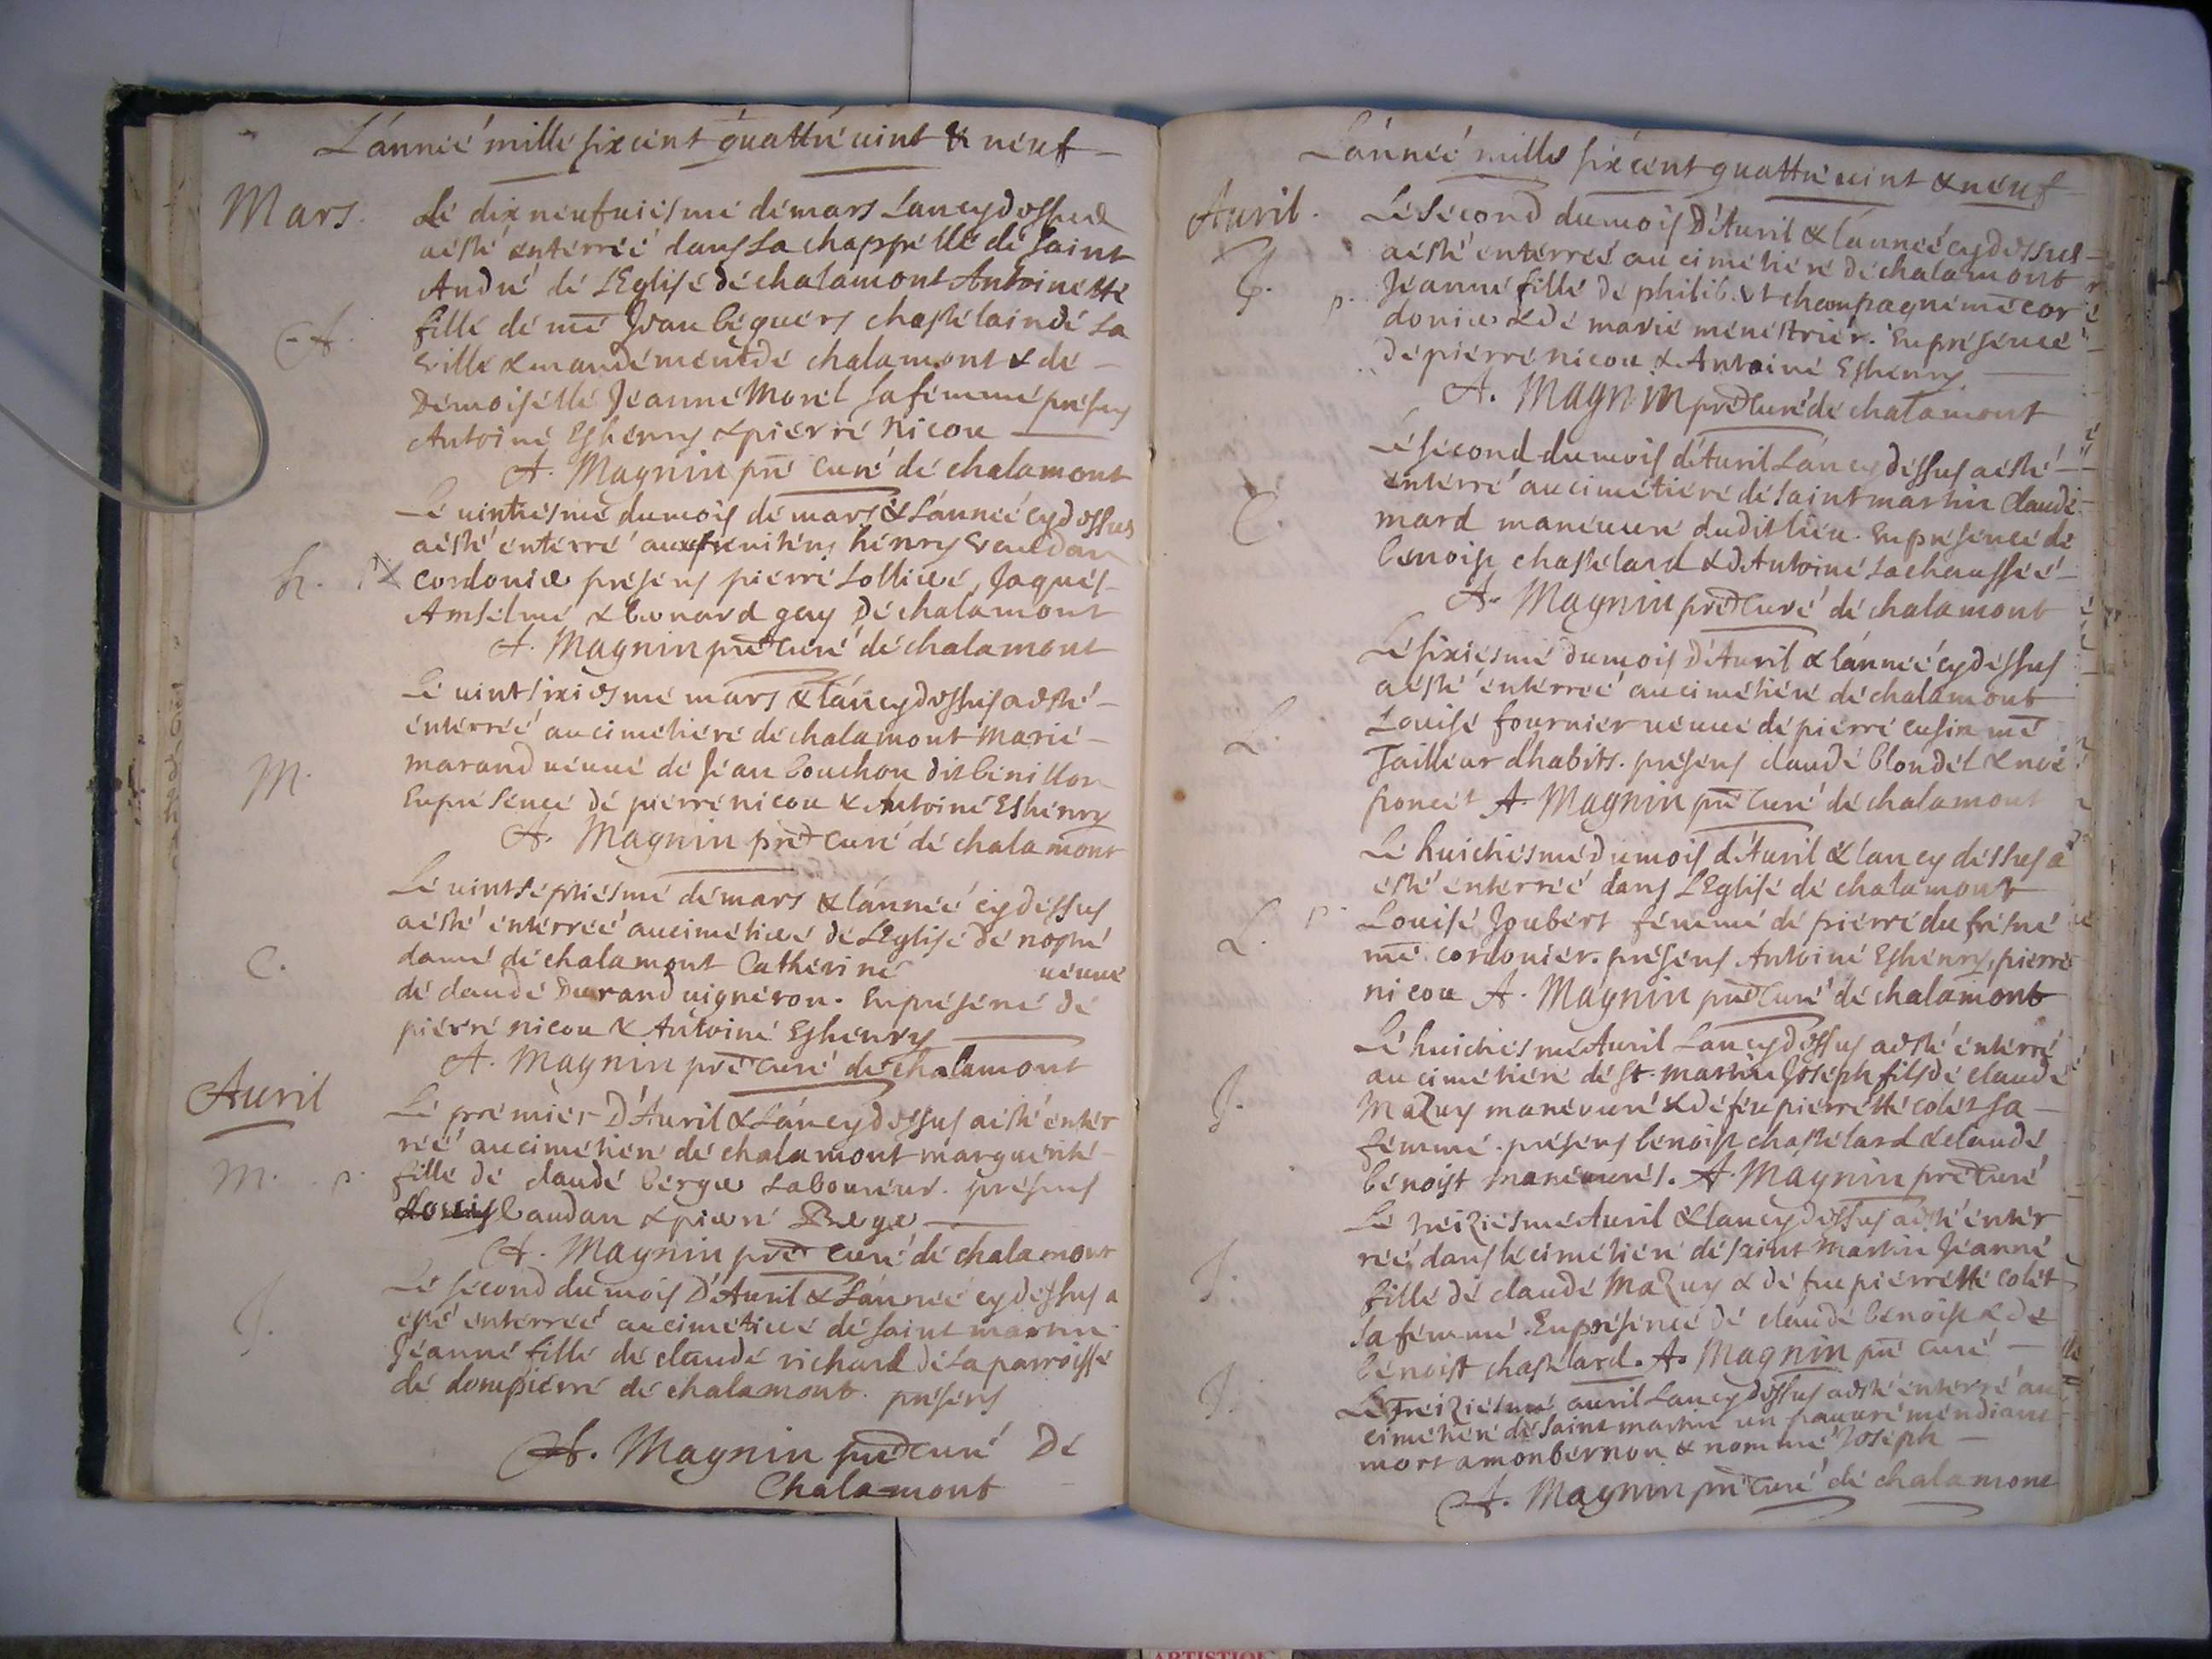 L'année mille six cent quattre vint & neuf
Mars.
Le dix neufuiesme de mars L'an cy dessus
a esté enterrée dans La chappelle de saint
André de L'Eglise de chalamont Antoinette
A.
fille de me Jean béguers chastelain de La
ville & mandement de chalamont & de
Demoiselle Jeanne Morel sa femme présens
Antoine Eshenry & pierre Nicou
A. Magnin pre curé de chalamont
Le vintiesme du mois de mars & L'année cy dessus
a esté enterré henry
h.
cordonier présens pierre Jaques
Amselme & Leonard gay de chalamont
A. Magnin pre curé de chalamont
Le vint sixiesme mars & l'an cy dessus a esté
enterrée au cimetiere de chalamont Marie
M.
marand veuve de Jean bouchou dit
En présence de pierre nicou & Antoine Eshenry
A. Magnin pre curé de chalamont
Le vint septiesme de mars & l'année cy dessus
a esté enterrée au cimetiere de L'Eglise de nostre
C.
dame de chalamont Catherine veuve
de claude Durand vigneron. En présence de
pierre nicou & Antoine Eshenry
A. Magnin pre curé de chalamont
Auril
Le premier D'Auril & L'an cy dessus a esté enter
rée au cimetiere de chalamont marguerite
M. p.
fille de claude berger Laboureur. présens
baudan & pierre Berger
A. Magnin pre curé de chalamont
Le second du mois D'Auril & L'année cy dessus a
esté enterrée au cimetiere de saint martin
J.
Jeanne fille de claude richard de La parroisse
de dompierre de chalamont. présens
A. Magnin pre curé De
Chalamont
L'année mille six cent quattre vint & neuf
Auril.
Le second du mois D'Auril & l'année cy dessus
a esté enterrée au cimetiere de chalamont
J. p.
Jeanne fille de philibert champagne me cor
donier & de marie menestrier. En présence
de pierre nicou & Antoine Eshenry
A. Magnin pre curé de chalamont
Le second du mois d'Auril L'an cy dessus a esté
enterré au cimetiere de saint martin Claude
C.
mard maneuure dudit lieu. En présence de
benoist chastelard & d'Antoine Lachaussée
A. Magnin pre curé de chalamont
Le sixiesme du mois D'Auril & l'année cy dessus
a esté enterrée au cimetiere de chalamont
L.
Louise fournier veuve de pierre cusin me
Tailleur d'habits. présens claude blondel & noé
poncet A. Magnin pre curé de chalamont
Le huictiesme du mois d'Auril & l'an cy dessus a
esté enterrée dans L'Eglise de chalamont
L. p.
Louise Joubert femme de pierre dufresne
me cordonier. présens Antoine Eshenry, pierre
nicou A. Magnin pre curé de chalamont
Le huictiesme Auril L'an cy dessus a esté enterré
au cimetiere de st. martin Joseph fils de claude
J.
Mazuy maneuure & de feu pierrette colet sa
femme. présens benoist chastelard & claude
benoist maneuures. A. Magnin pre curé
Le treiziesme Auril & l'an cy dessus a esté enter
rée dans le cimetiere de saint martin Jeanne
J.
fille de claude Mazuy & de feu pierrette colet
sa femme. En présence de claude benoist & de
benoist chastelard. A. Magnin pre curé
J.
Le Treiziesme auril L'an cy dessus a esté enterré au
cimetiere de saint martin un pauure mendiant
mort a monbernon & nommé Joseph
A. Magnin pre curé de chalamont